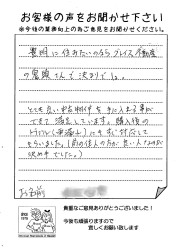 お客様の声をお聞かせ下さい
※今後の業務向上の為ご意見をお聞かせください。
豊明に住みたいのなら プレイス不動産
の窓口さんで決まりです。
とても良い中古物件を手に入れる事が
できて満足しています。購入後の
トラブル(雨漏り)にもすぐ対応して
もらいました。(前の住人の方が良い人なのが
決め手でした。)
お名前
貴重なご意見ありがとうございました!
今後も頑張りますので
宜しくお願い致します。